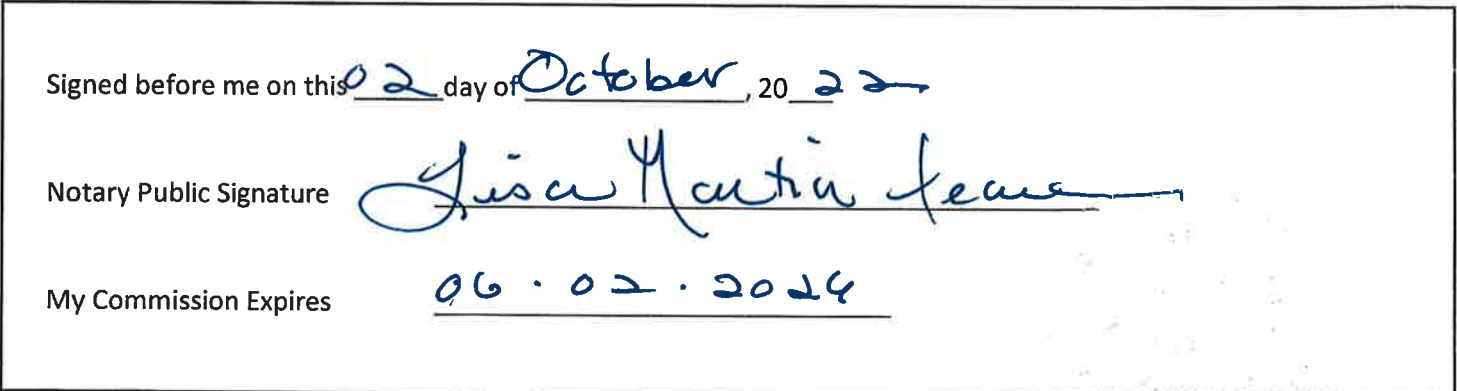 Signed before me on this 02 day of October, 20 22
Notary Public Signature Lisa Martin
My Commission Expires 06.02.2024